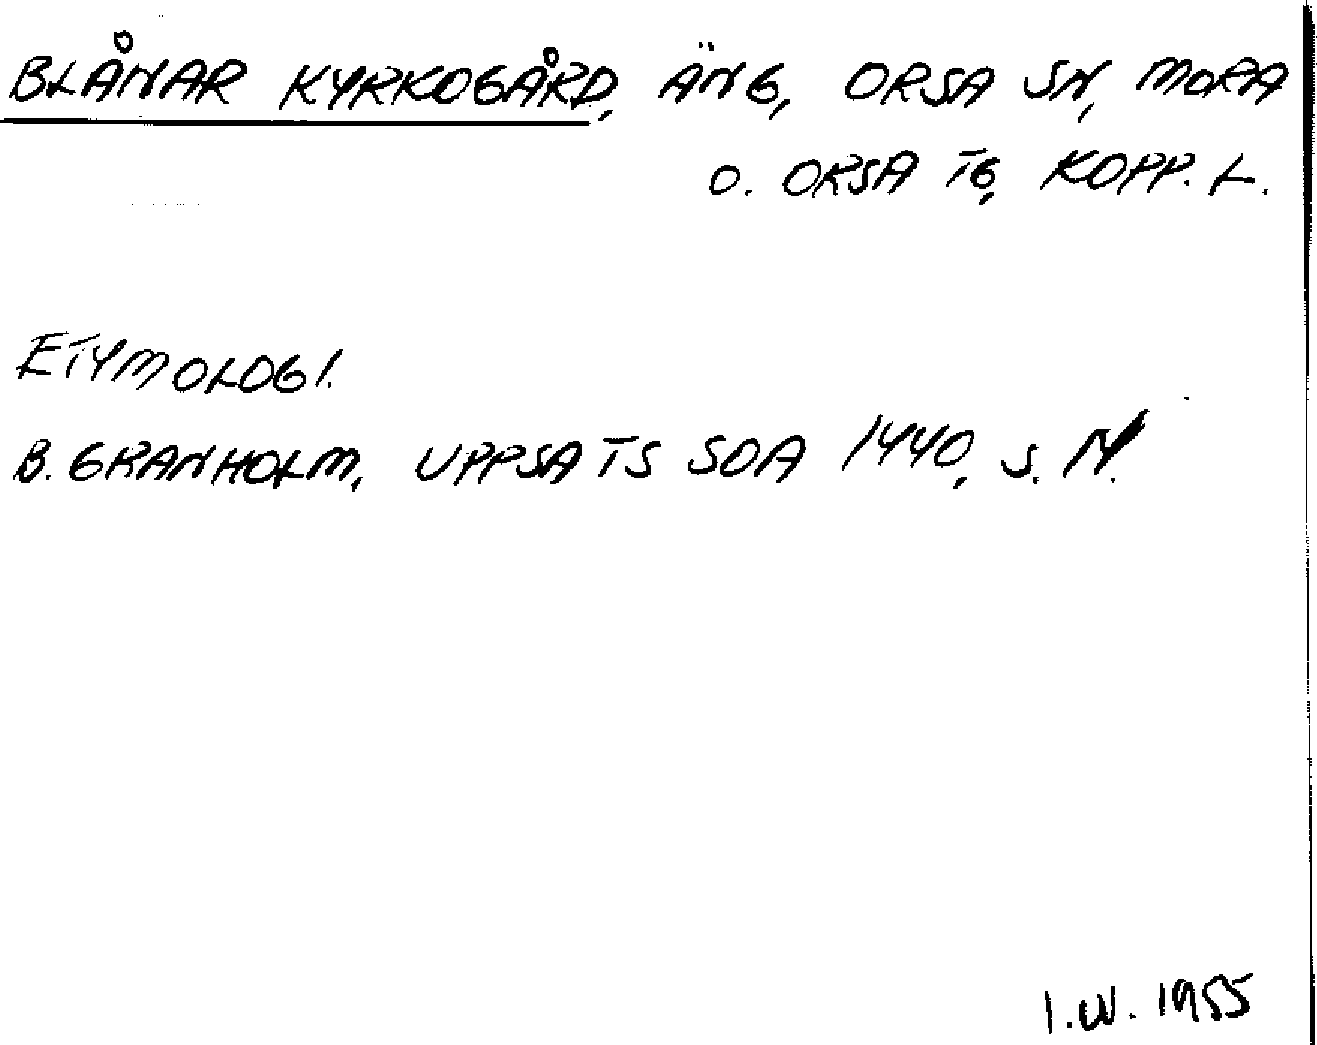 BLÅNAR KYRKOGÅRD, ÄNG, ORSA SN, MORA
O. ORSA TG, KOPP. L.
ETYMOLOGI.
B. GRANHOLM, UPPSATS SOA 1440, S.
I.W. 1955